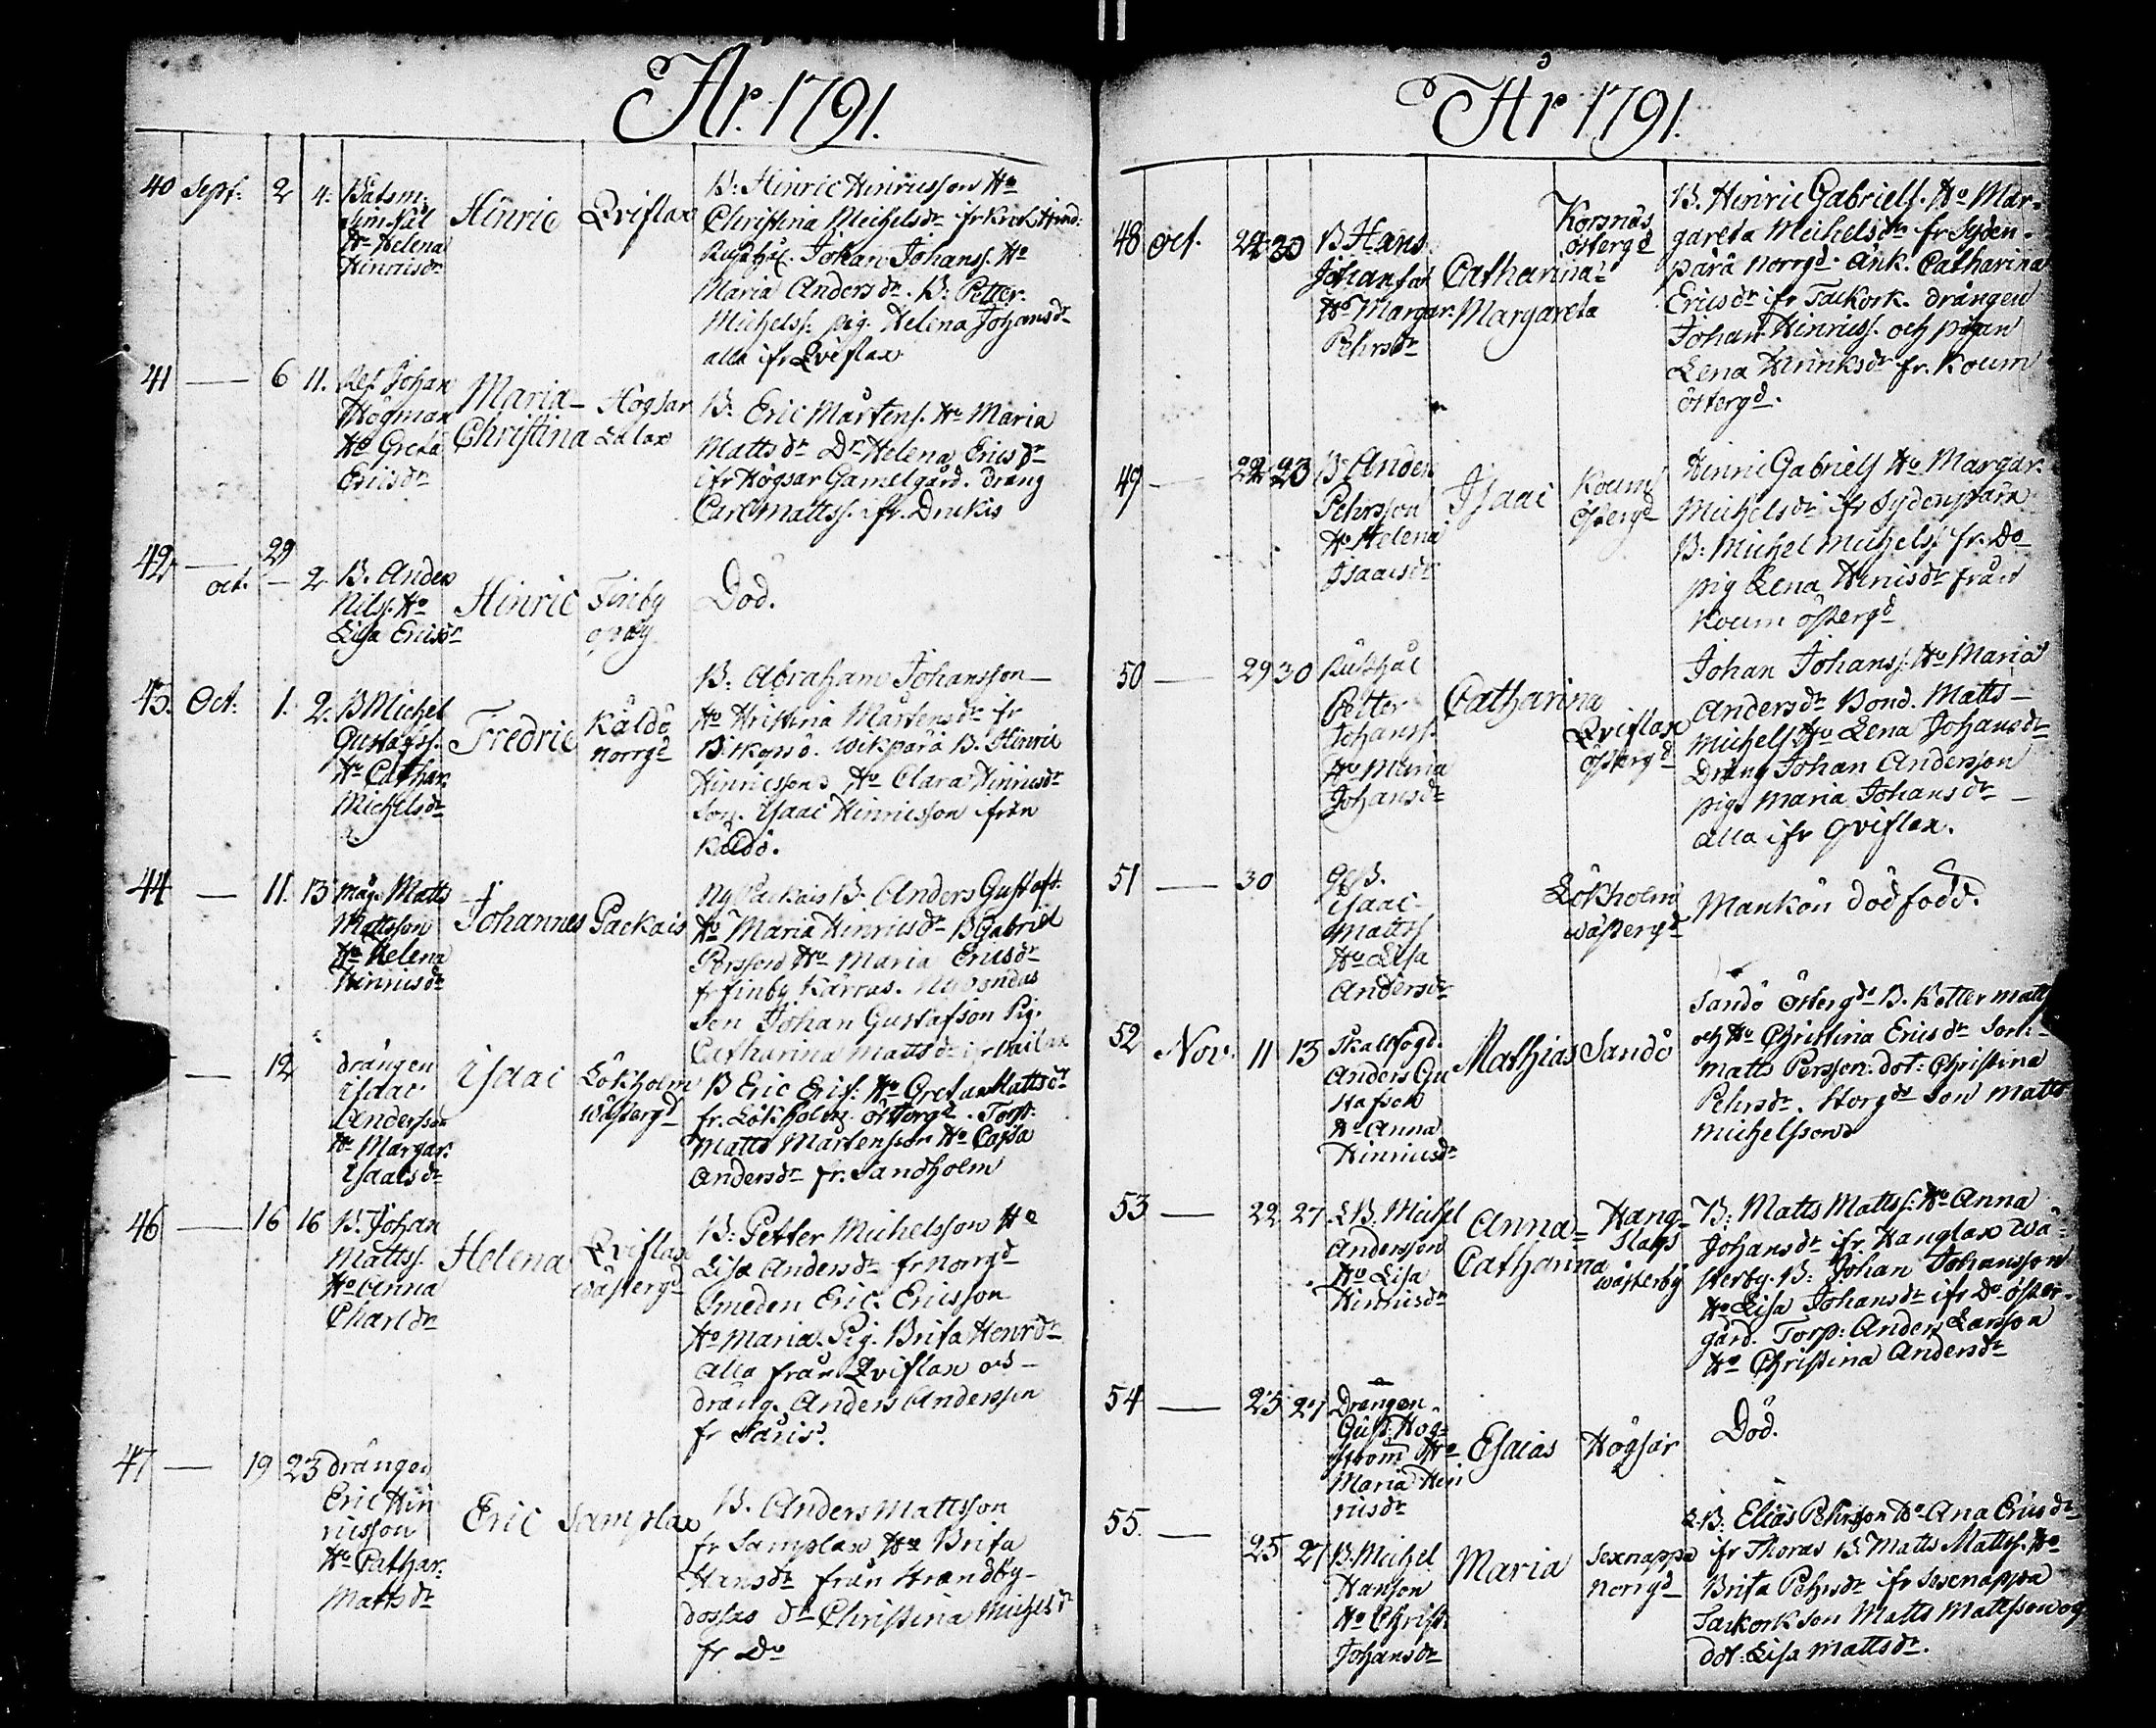 Åhr 1791.
40 Sept: 2 4. Båtsm:
Hu Helena
Hinricsdr
Hinric
Qviflax
B: Hinric Hinricsson Hu
Christina Michelsdr
Johan Johanss. Hu
Maria Andersdr. B: Petter
Michelss: pig. Helena Johansdr
alla ifr Qviflax
41 — 6 11. Johan
Högman
Hu Greta
Ericsdr
Maria-
Christina
Högsar
B: Eric Mårtens. Hu Maria
Mattsdr Dr Helena Ericsdr
ifr Högsar Gamelgård. Dräng
Carl Mattss. ifr.
42 — 29
oct. — 2 B. Anders
Nilss. Hu
Lisa Ericsdr
Hinric
Finby
Död.
43. Oct: 1. 2. B Michel
Gustafss.
Hu Cathar.
Michelsdr
Fredric
Kåldö
Norrgd
B: Abraham Johansson
Hu Kristina Mårtensdr ifr
Biskopsö. Wikpärä B. Hinric
Hinricsson Hu Clara Hinricsdr
Son. Isaac Hinricsson från
Kåldö.
44 — 11. 13 Måg. Matts
Mattsson
Hu Helena
Hinricsdr
Johannes
Packais
Ny Packais B. Anders Gustafs.
Hu Maria Hinricsdr B Gabriel
Persson Hu Maria Ericsdr
fr finby Kårras.
Son Johan Gustafson Pig.
Catharina Mattsdr ifr
— 12 drängen
Isaac
Andersson
Hu Margar:
Isaacsdr
Isaac
Lökholm
Wästergd
B Eric Erics: Hu Greta Mattsdr
fr. Lökholm östergd. Torp:
Matts Mårtensson Hu Cajsa
Andersdr fr. Sandholm
46 — 16 16 B. Johan
Mattss.
Hu Anna
Charldr
Helena
Qviflax
Wästergd
B: Petter Michelsson Hu
Lisa Andersdr fr Norrgd
Smeden Eric Ericsson
Hu Maria. Pig. Brita Henrdr
Alla från Qviflax och
dräng. Anders Andersson
fr
47 — 19 23 drängen
Eric Hin
ricsson
Hu Cathar:
Mattsdr
Eric
Samslax
B. Anders Mattsson
fr Samslax Hu Brita
Hansdr från Strandby
dr Christina Michelsdr
fr Do
Åhr 1791.
48 oct. 22 23 B Hans
Johanson
Hu Margar:
Pehrsdr
Catharina-
Margareta
Korsnäs
östergd
B. Hinric Gabriels. Hu Mar-
gareta Michelsdr fr Syden-
pärä Norrgd. Änk. Catharina
Ericsdr ifr Tackork. drängen
Johan Hinricss. och pigan
Lena Hinriksdr fr. Koum
östergd.
49 — 22 23 B Anders
Pehrsson
Hu Helena
Isaacsdr
Isaac
Koum
östergd
Hinric Gabriels Hu Margar.
Michelsdr ifr Sydenpärä
B: Michel Michelss fr. Do
pig Lena Hinricsdr från
Koum östergd
50 — 29 30 Rusthål
Petter
Johanss.
Hu Maria
Johansdr
Catharina
Qviflax
östergd
Johan Johanss. Hu Maria
Andersdr Bond. Matts
Michels Hu Lena Johansdr
Dräng Johan Andersson
piga Maria Johansdr
alla ifr Qviflax.
51 — 30
Isaac
Mattss
Hu Lisa
Andersdr
Lökholm
Wästergd
Mankön dödfödd.
52 Nov. 11 13 Skallfogd.
Anders Gu
stafson
Hu Anna
Hinricsdr
Mathias
Sandö
Sandö Östergd B. Petter Matts
och Hu Christina Ericsdr Son:
Matts Persson. dot: Christina
Pehrsdr. Storgds Son Matts
Michelsson
53 — 22 27 LB. Michel
Andersson
Hu Lisa
Hinricsdr
Anna=
Catharina
Hang-
slax
Wästerby
B: Matts Mattss: Hu Anna
Johansdr ifr Hanglax Wä-
sterby. B: Johan Johansson
Hu Lisa Johansdr ifr Do öster-
gård. Torp: Anders Larsson
Hu Christina Andersdr
54 — 25 27 Drängen
Gust: Hög-
ström Hu
Maria Hin
ricsdr
Esaias
Högsar
Död.
55. — 25 27 B. Michel
Hanson
Hu Christi.
Johansdr
Maria
Sexnappa
Norrgd
LB: Elias Pehrsson Hu Ana Ericsdr
ifr Thoras B. Matts Mattss. Hu
Brita Pehrsdr ifr Sexnappa
Tackork son Matts Mattsson och
dot: Lisa Mattsdr.